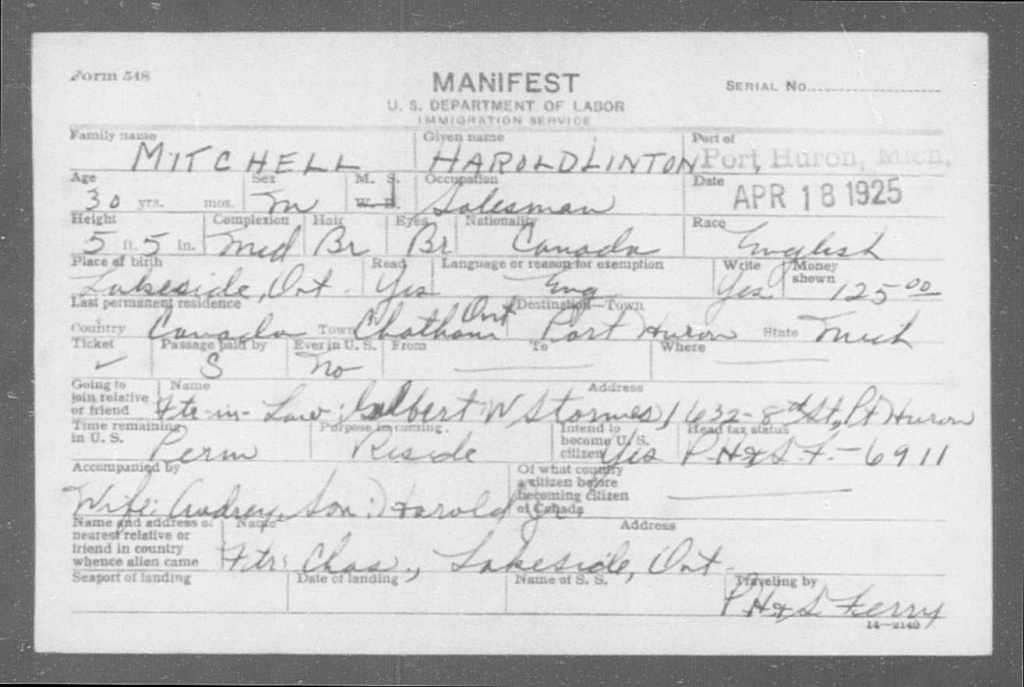 Form 548 MANIFEST SERIAL No.
U. S. DEPARTMENT OF LABOR
IMMIGRATION SERVICE
Family name Given name Port of
MITCHELL HAROLD LINTON Port Huron, Mich.
Age Sex M. S. Occupation Date
30 yrs. mos. M W. D. Salesman APR 18 1925
Height Complexion Hair Eyes Nationality Race
5 ft. 5 in. Med Br Br Canada English
Place of birth Read Language or reason for exemption Write Money shown
Lakeside, Ont. Yes Eng Yes. 125 00
Last permanent residence Destination—Town
Country Canada Town Chatham Ont Port Huron State Mich
Ticket Passage paid by Ever in U. S. From To Where
✓ S No
Going to join relative or friend Name Address
Ftr-in-Law: Albert W Stormes, 1632-8th St, Pt Huron
Time remaining in U. S. Purpose in coming. Intend to become U. S. citizen Head tax status
Perm Reside Yes P.H&S F.-6911
Accompanied by Of what country a citizen before becoming citizen of Canada
Wife: Audrey, Son: Harold Jr.
Name and address of nearest relative or friend in country whence alien came Name Address
Ftr: Chas., Lakeside, Ont.
Seaport of landing Date of landing Name of S. S. Traveling by
P.H&S. Ferry
14—2140